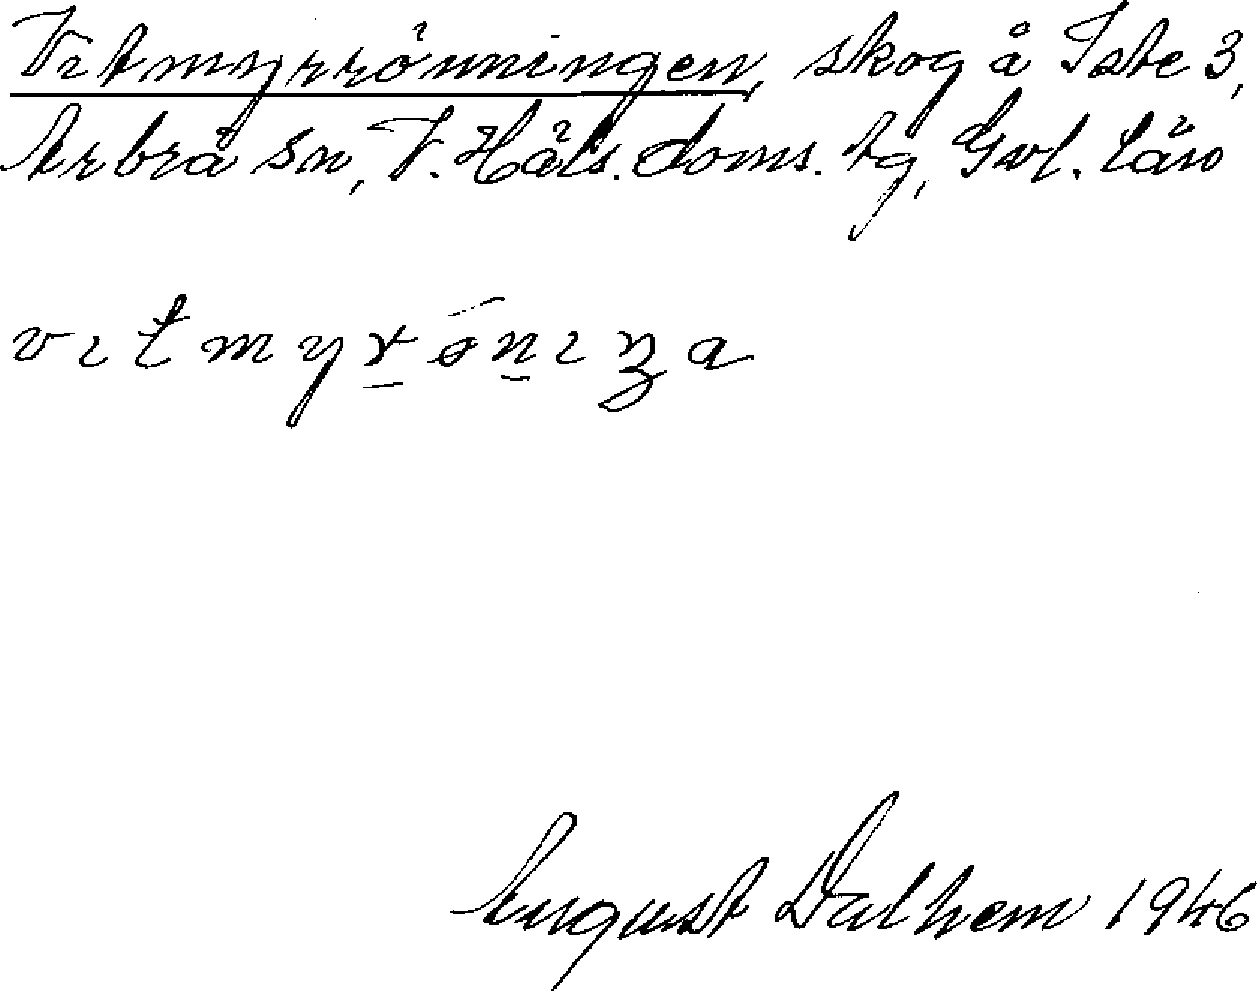 Vitmyrrönningen, skog å Iste 3,
Arbrå sn, V. Häls. doms. tg, Gvl. län
vɩtmyr̲øn̲ɩŋa
August Dalhem 1946